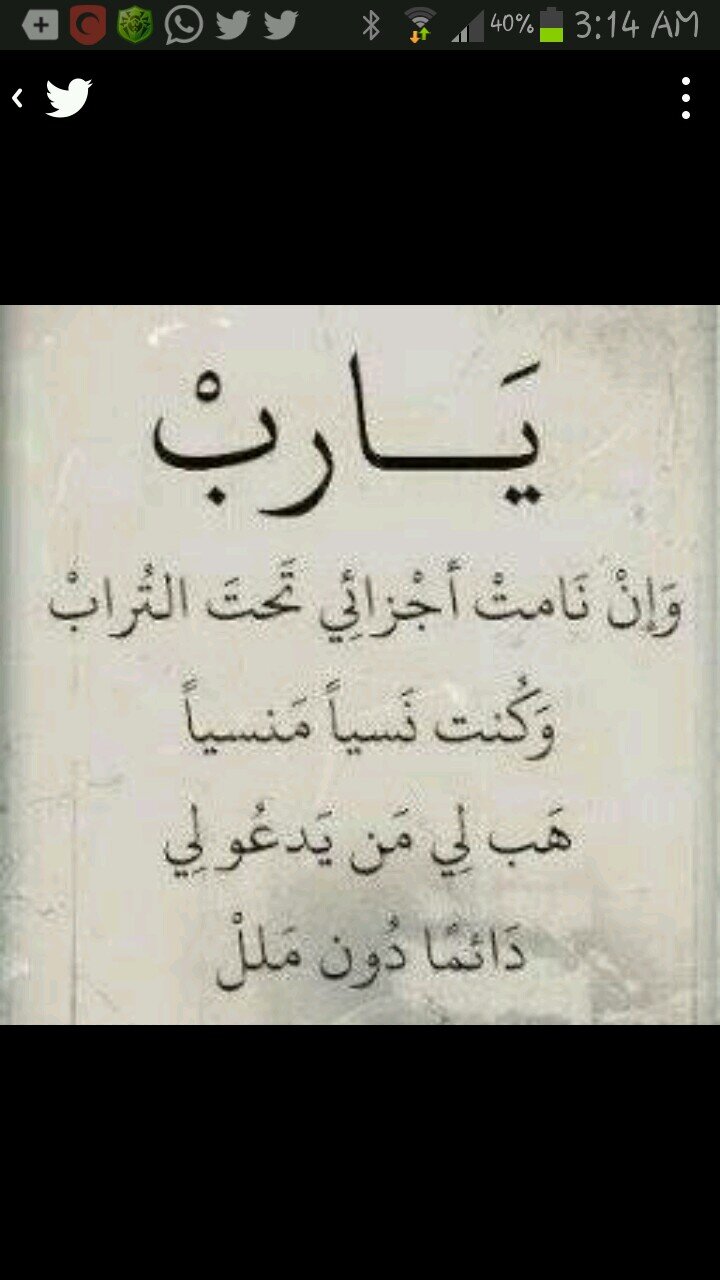 40% 3:14 AM
يَــاربْ
وَإنْ نَامتْ أجْزائِي تَحتَ التُرابْ
وَكُنت نَسياً مَنسياً
هَب لِي مَن يَدعُو لِي
دَائمًا دُون مَللْ